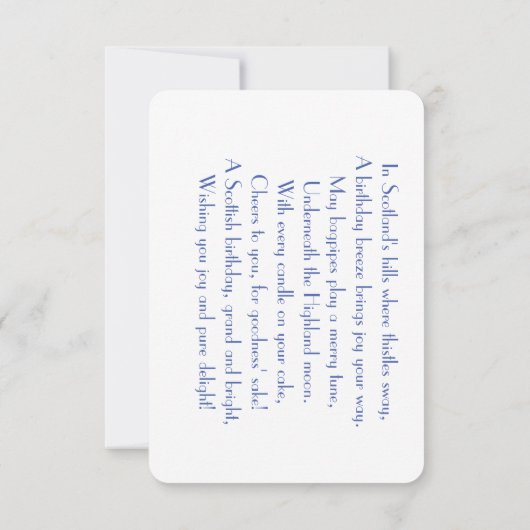 In Scotland's hills where thistles sway,
A birthday breeze brings joy your way.
May bagpipes play a merry tune,
Underneath the Highland moon.
With every candle on your cake,
Cheers to you, for goodness' sake!
A Scottish birthday, grand and bright,
Wishing you joy and pure delight!